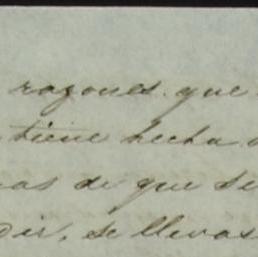 razones que
tiene hecha
as de que se
dir, se llevas